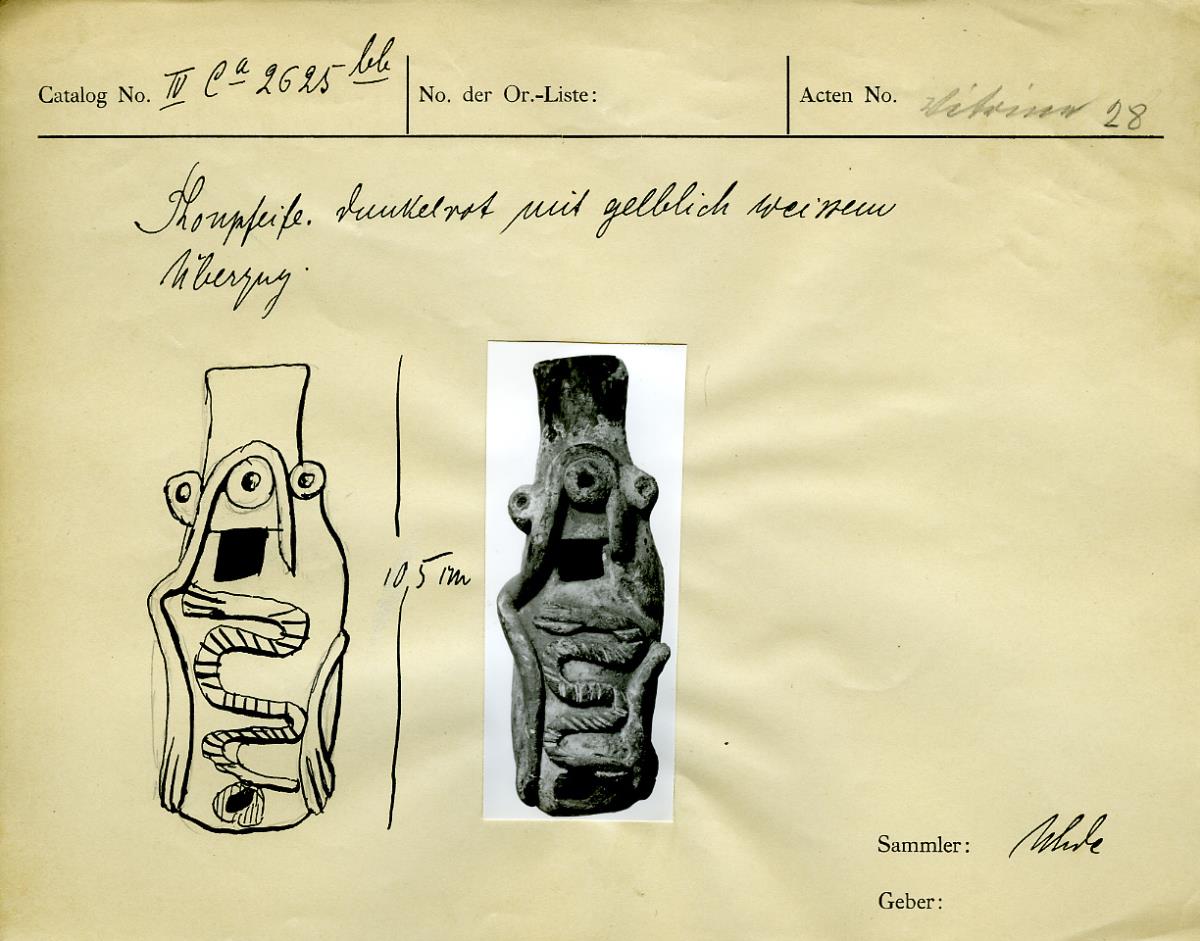 Catalog No. IV Ca 2625 bb No. der Or.-Liste: Acten No. Vitrine 28
Thonpfeife. dunkelrot mit gelblich weissem
Überzug.
10,5 cm
Sammler: Uhde
Geber: